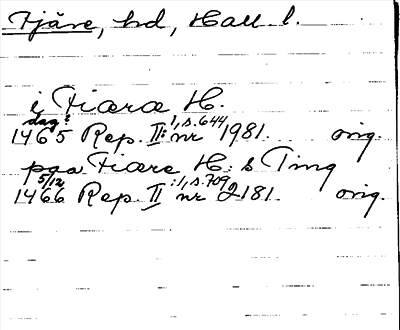 Fjäre, hd, Hall l.
i Fiære H.
dag?
1465 Rep. II:1, s. 644 nr 1981. orig.
paa Fiære H: s Ting
1466 5/12 Rep. II:1, s. 709 nr 2181. orig.